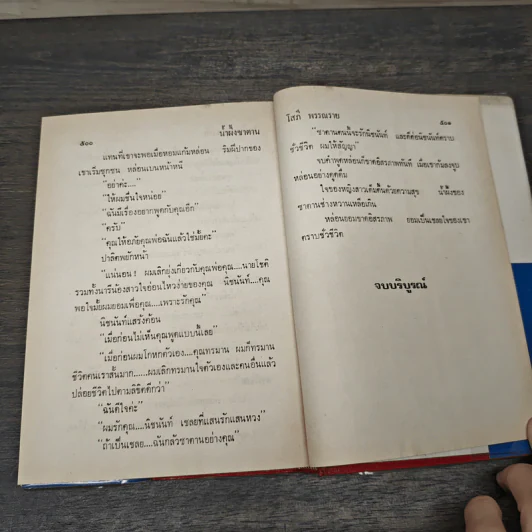 ๕๐๐
น้ำผึ้งซาตาน
แทนที่เขาจะพอเมื่อหอมแก้มหล่อน ริมฝีปากของ
เขาเริ่มซุกซน หล่อนเบนหน้าหนี
"อย่าค่ะ...."
"ให้ผมชื่นใจหน่อย"
"ฉันมีเรื่องอยากพูดกับคุณอีก"
"ครับ"
"คุณให้อภัยคุณพ่อฉันแล้วใช่มั้ยคะ"
ปาลิตพยักหน้า
"แน่นอน! ผมเลิกยุ่งเกี่ยวกับคุณพ่อคุณ....นายโชติ
รวมทั้งนารีน้องสาวใจอ่อนไหวง่ายของคุณ นิชนันท์....คุณ
พอใจมั้ยผมยอมเพื่อคุณ....เพราะรักคุณ"
นิชนันท์แสร้งค้อน
"เมื่อก่อนไม่เห็นคุณพูดแบบนี้เลย"
"เมื่อก่อนผมโกหกตัวเอง....คุณทรมาน ผมก็ทรมาน
ชีวิตคนเราสั้นมาก......ผมเลิกทรมานใจตัวเองและคนอื่นแล้ว
ปล่อยชีวิตไปตามลิขิตดีกว่า"
"ฉันดีใจค่ะ"
"ผมรักคุณ....นิชนันท์ เชลยที่แสนรักแสนหวง"
"ถ้าเป็นเชลย....ฉันกลัวซาตานอย่างคุณ"
โสภี พรรณราย
๕๐๑
"ซาตานตนนี้จะรักนิชนันท์ และดีต่อนิชนันท์ตราบ
ชั่วชีวิต ผมให้สัญญา"
จบคำพูดหล่อนก็ขาดอิสรภาพทันที เมื่อเขาก้มลงจุบ
หล่อนอย่างดูดดื่ม
ใจของหญิงสาวเต้นตื้นด้วยความสุข น้ำผึ้งของ
ซาตานช่างหวานเหลือเกิน
หล่อนยอมขาดอิสรภาพ ยอมเป็นเชลยใจของเขา
ตราบชั่วชีวิต
จบบริบูรณ์